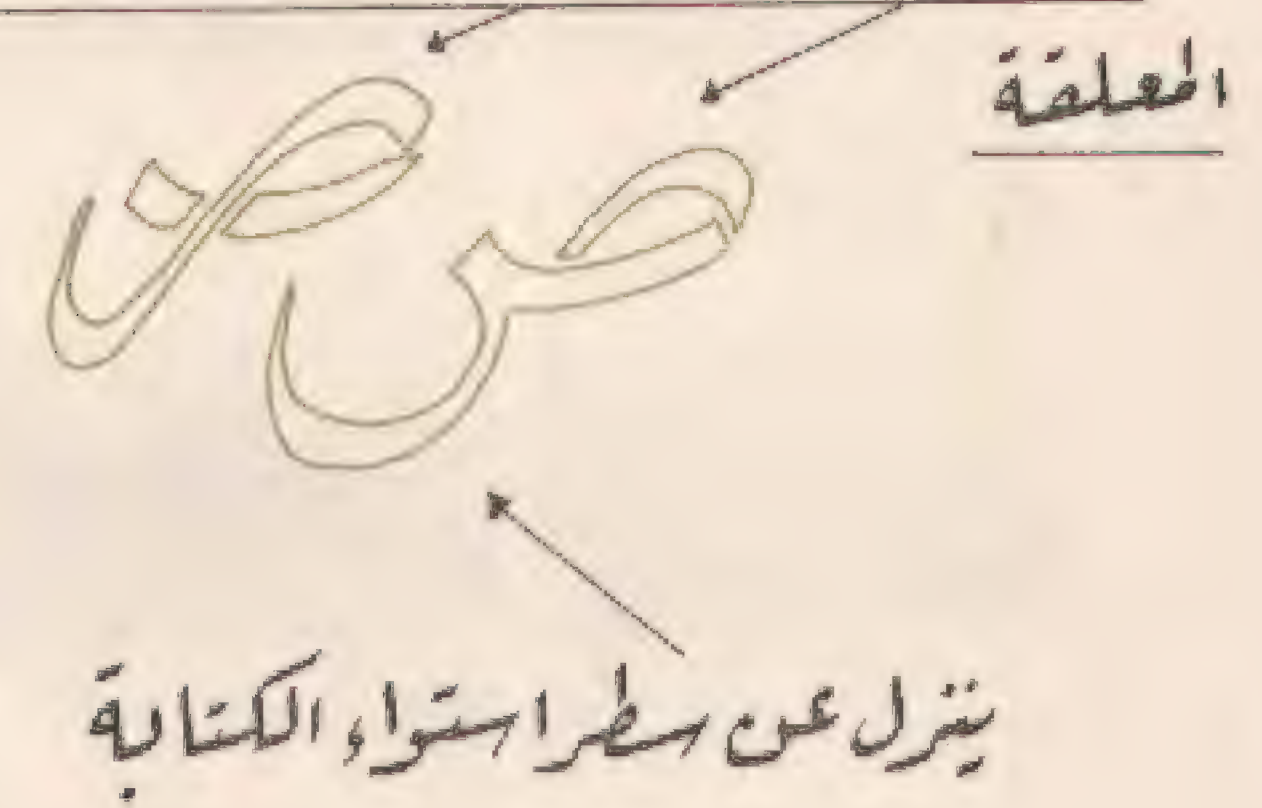 المعلقة
ص ص
ينزل عن سطر استواء الكتابة